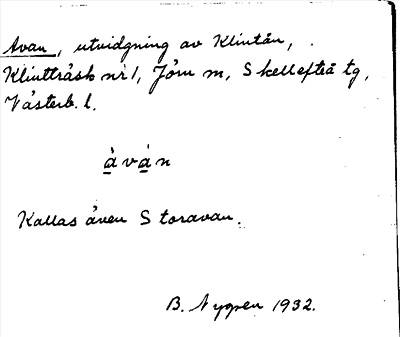 Avan, utvidgning av Klintån,
Klintträsk nr 1, Jörn m, Skellefteå tg,
Västerb. l.
àván
Kallas även Storavan.
B. Nygren 1932.